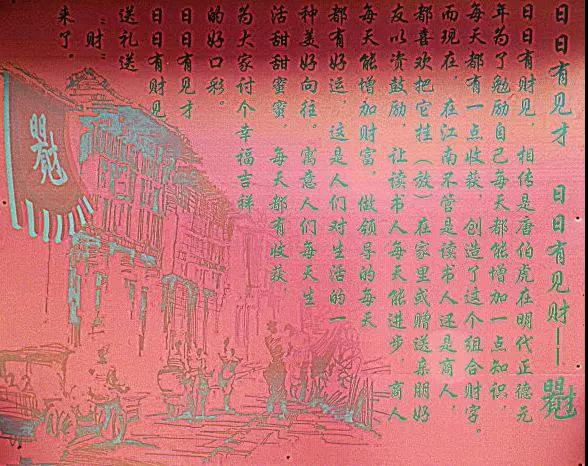 日日有見才　日日有見财——
日日有财见，相传是唐伯虎在明代正德元
年为了勉励自己每天都能增加一点知识，
每天都有一点收获，创造了这个组合财字。
而现在，在江南不管是读书人还是商人，
都喜欢把它挂（放）在家里或赠送亲朋好
友以资鼓励，让读书人每天能进步，商人
每天能增加财富，做领导的每天
都有好运，这是人们对生活的一
种美好向往。寓意人们每天生
活甜甜蜜蜜，每天都有收获，
为大家讨个幸福吉祥
的好口彩。
日日有见才
日日有财见
送礼送
“财”
来了。